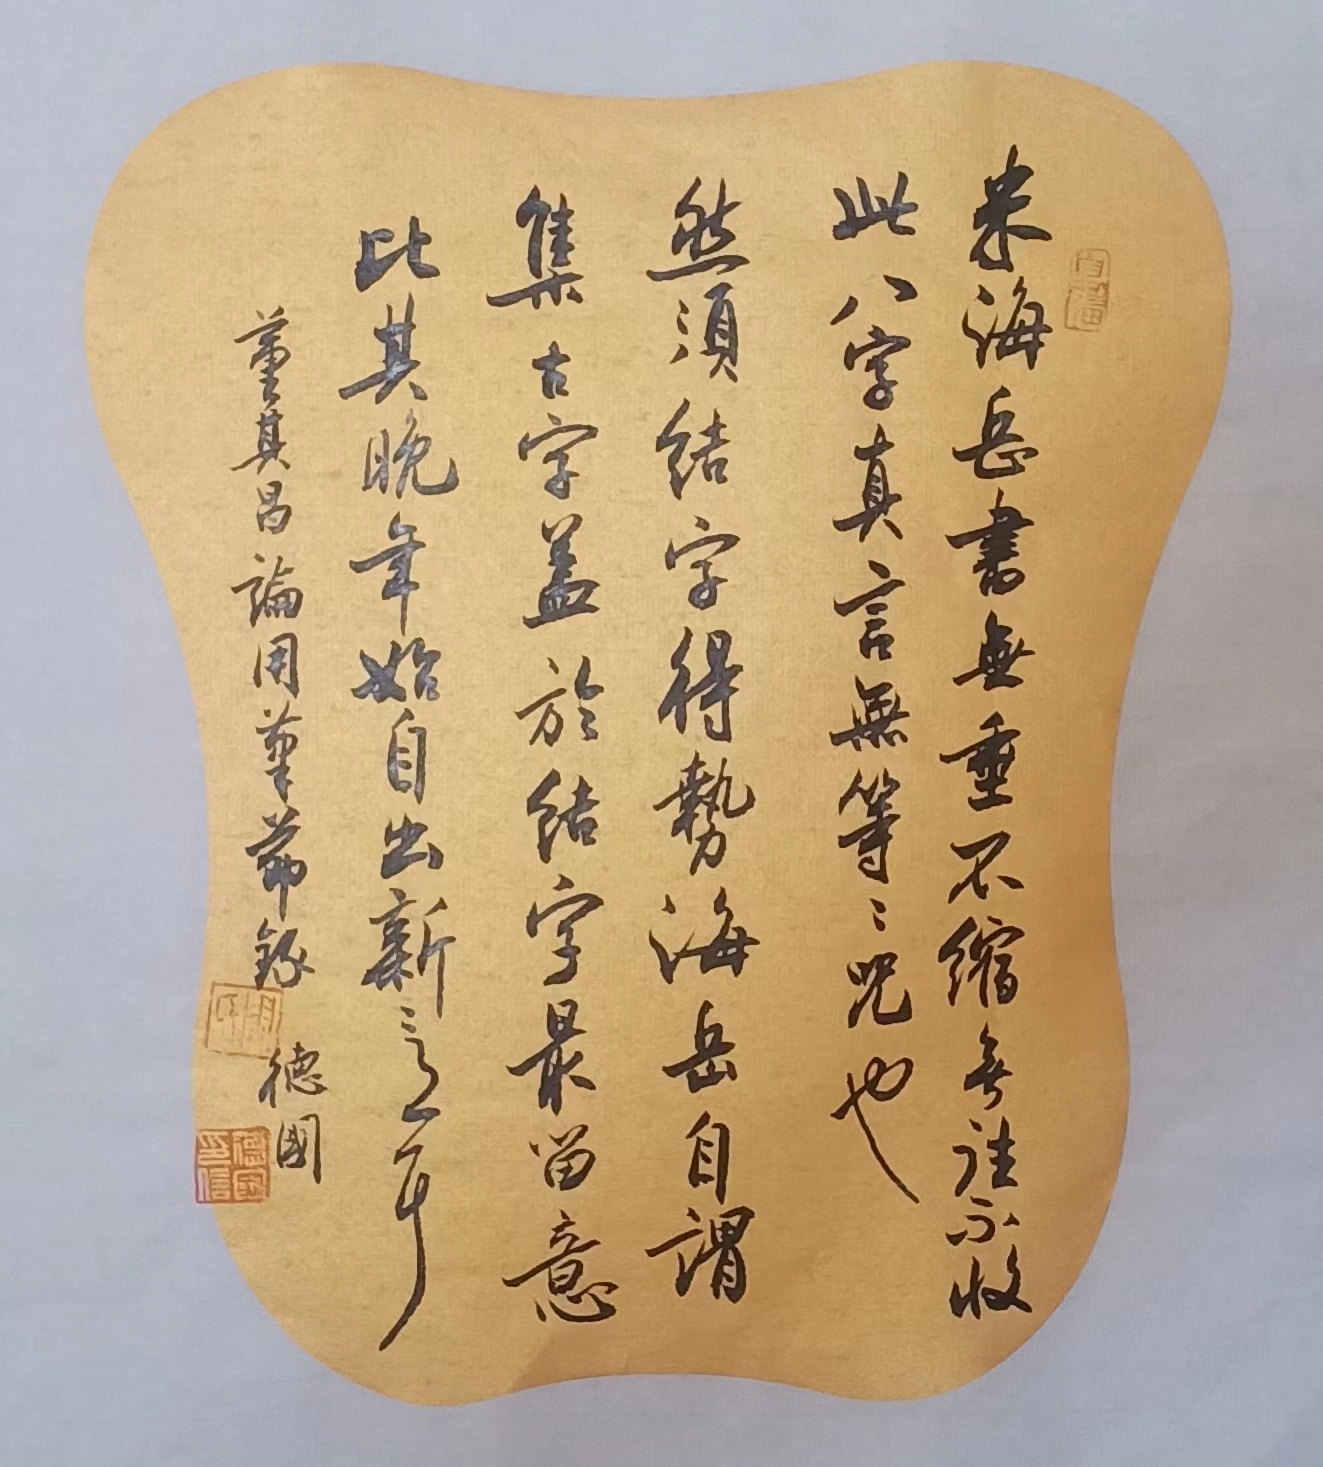 米海岳書無垂不縮無往不收
此八字真言無等〻咒也
然須結字得勢海岳自謂
集古字蓋於結字最留意
比其晚年始自出新意耳
董其昌論用筆節錄
德國
德國印信